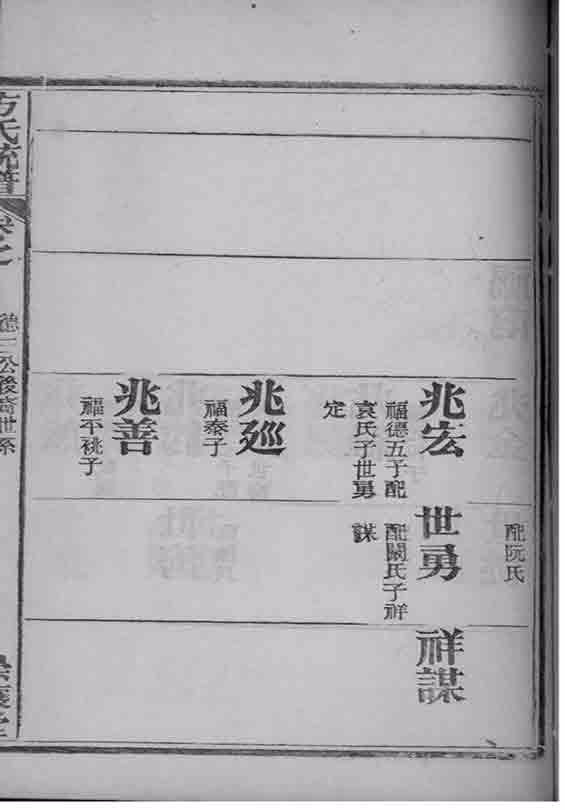 配阮氏
兆宏
福德五子配
袁氏子世勇
定
世勇
配關氏子祥
謀
祥謀
兆廵
福泰子
兆善
福平祧子
方氏統譜
卷之
德三公後裔世系